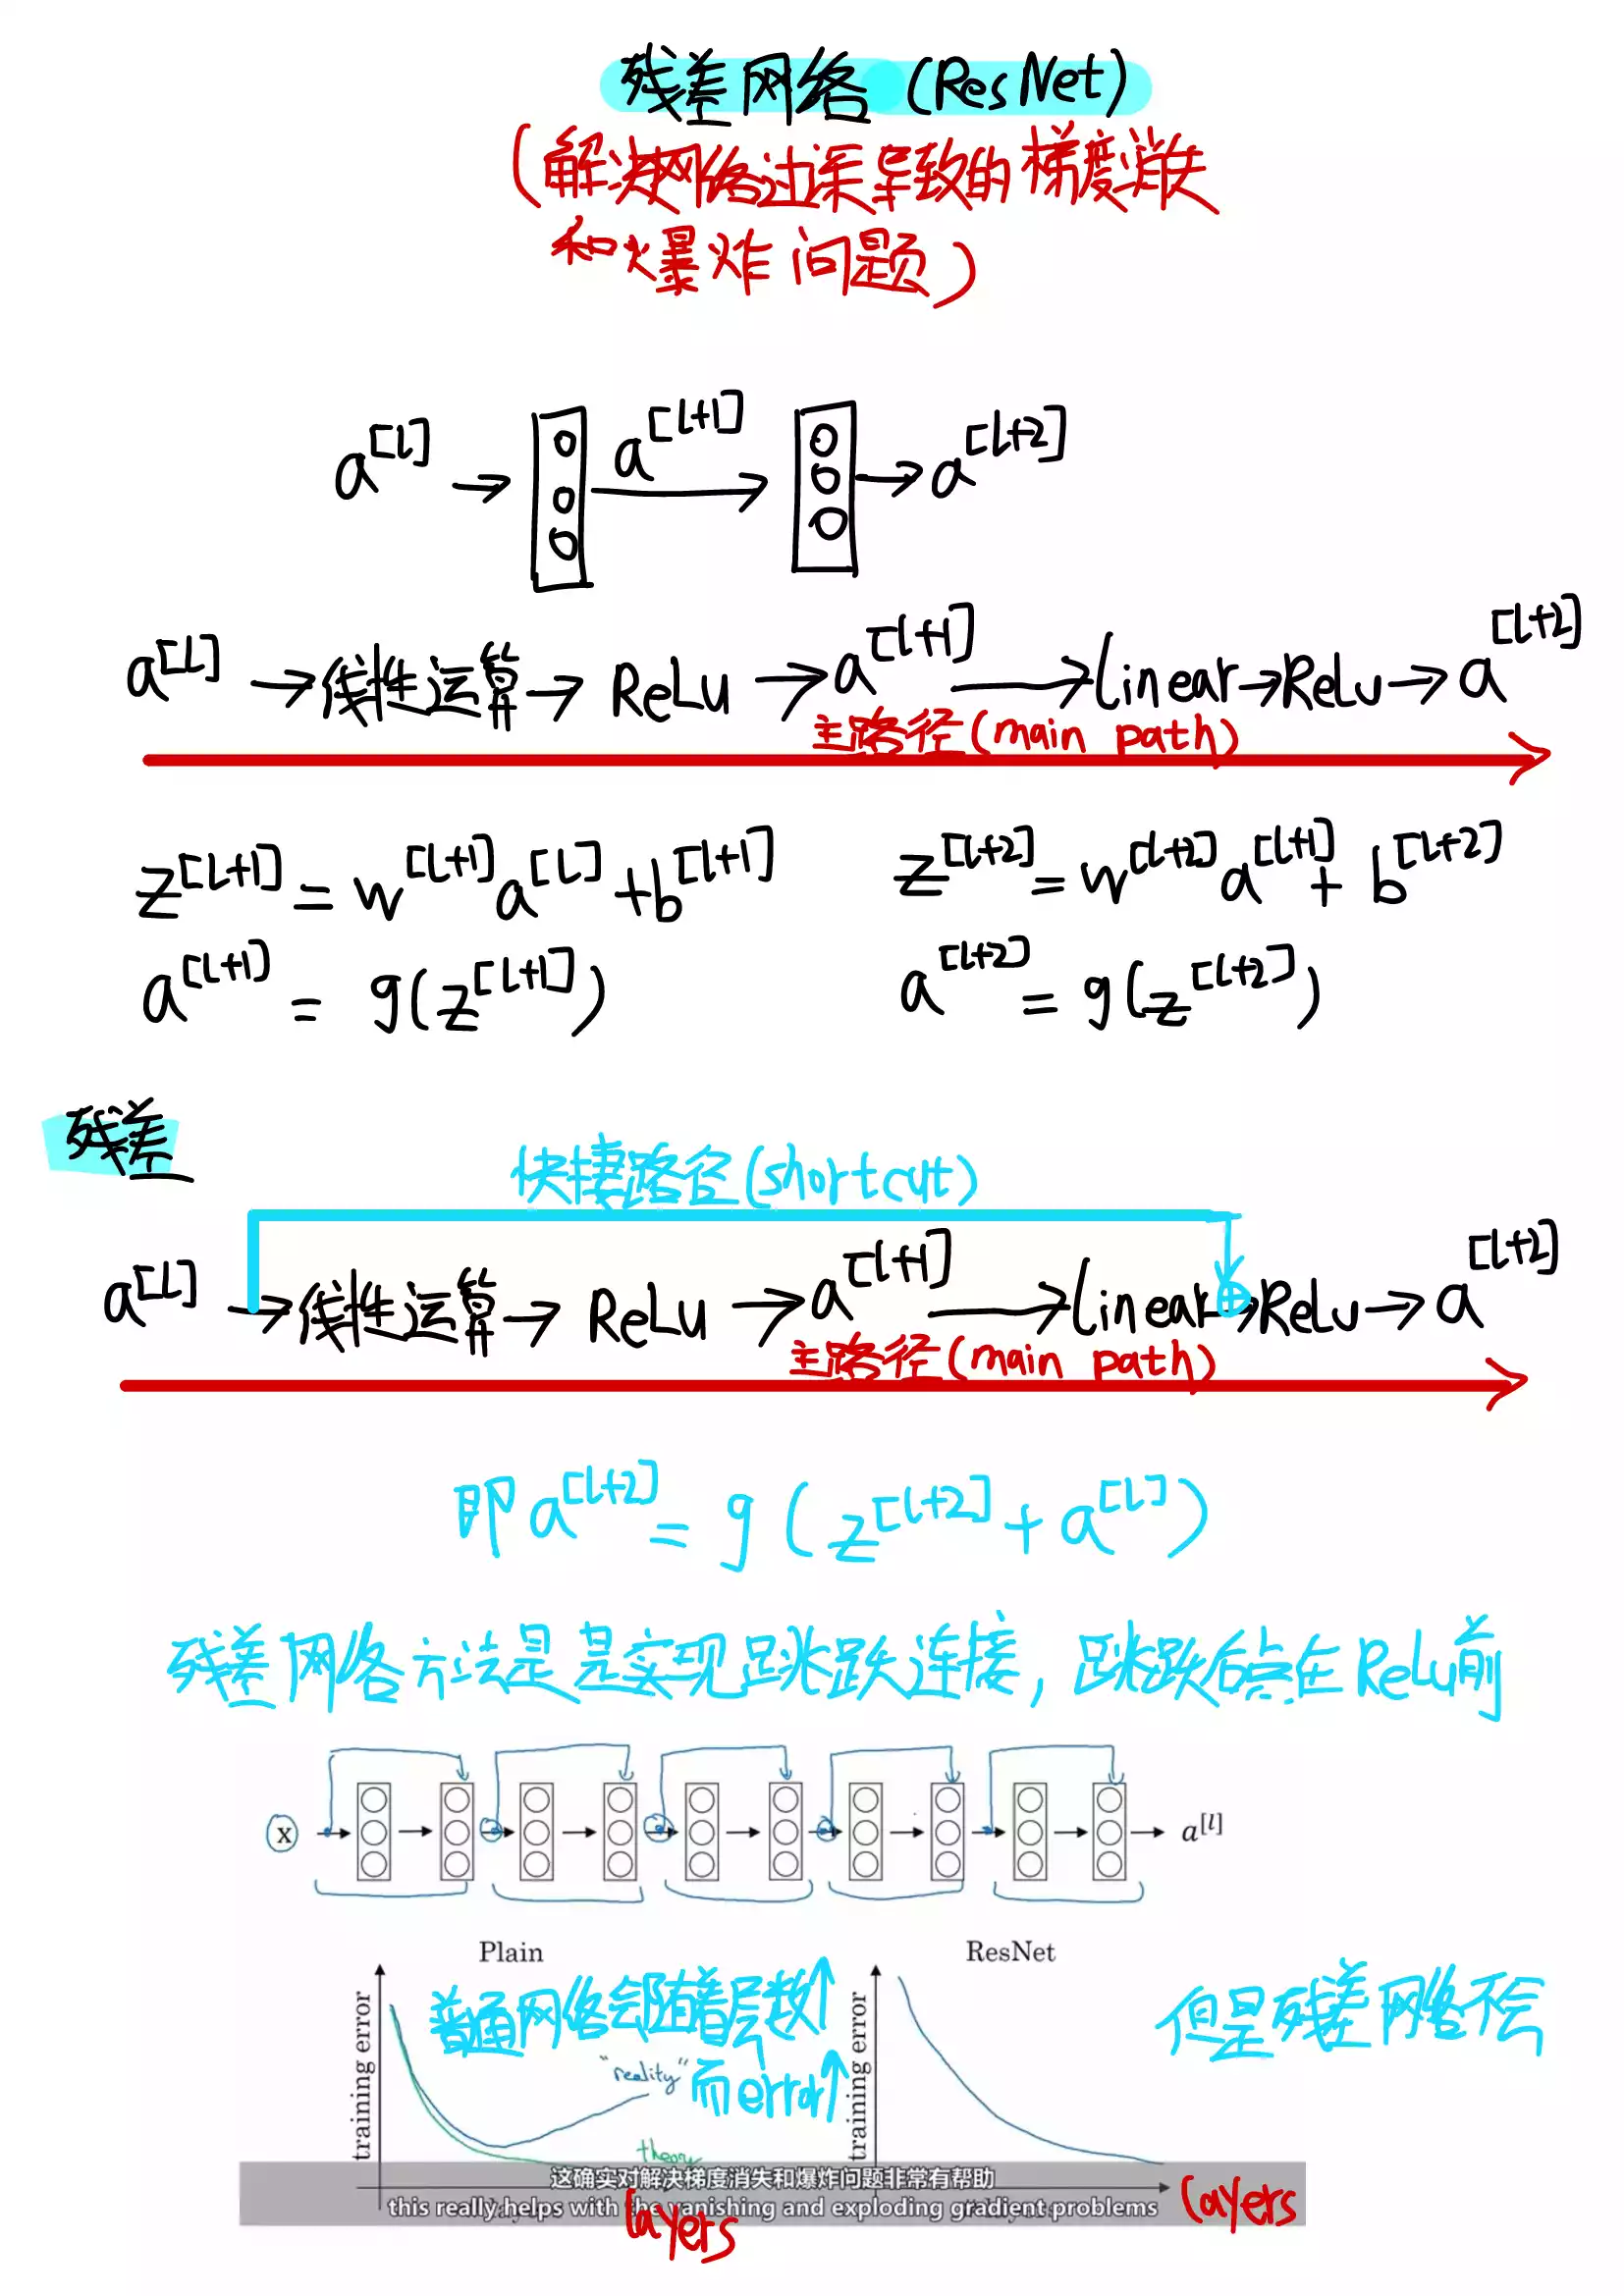 残差网络 (ResNet)
(解决网络过深导致的梯度消失
和爆炸问题)
a[l] → a[l+1] → a[l+2]
a[l] → 线性运算 → ReLu → a[l+1] → linear → Relu → a[l+2]
主路径 (main path)
z[l+1] = w[l+1] a[l] + b[l+1]
z[l+2] = w[l+2] a[l+1] + b[l+2]
a[l+1] = g(z[l+1])
a[l+2] = g(z[l+2])
残差
快捷路径 (shortcut)
a[l] → 线性运算 → ReLu → a[l+1] → linear ⊕ → Relu → a[l+2]
主路径 (main path)
即 a[l+2] = g(z[l+2] + a[l])
残差网络方法是是实现跳跃连接, 跳跃后点在ReLu前
x → → → → → → → → → → a[l]
Plain
ResNet
普通网络会随着层数↑
而error↑
但是残差网络不会
training error
"reality"
theory
training error
这确实对解决梯度消失和爆炸问题非常有帮助
this really helps with the vanishing and exploding gradient problems
layers
layers